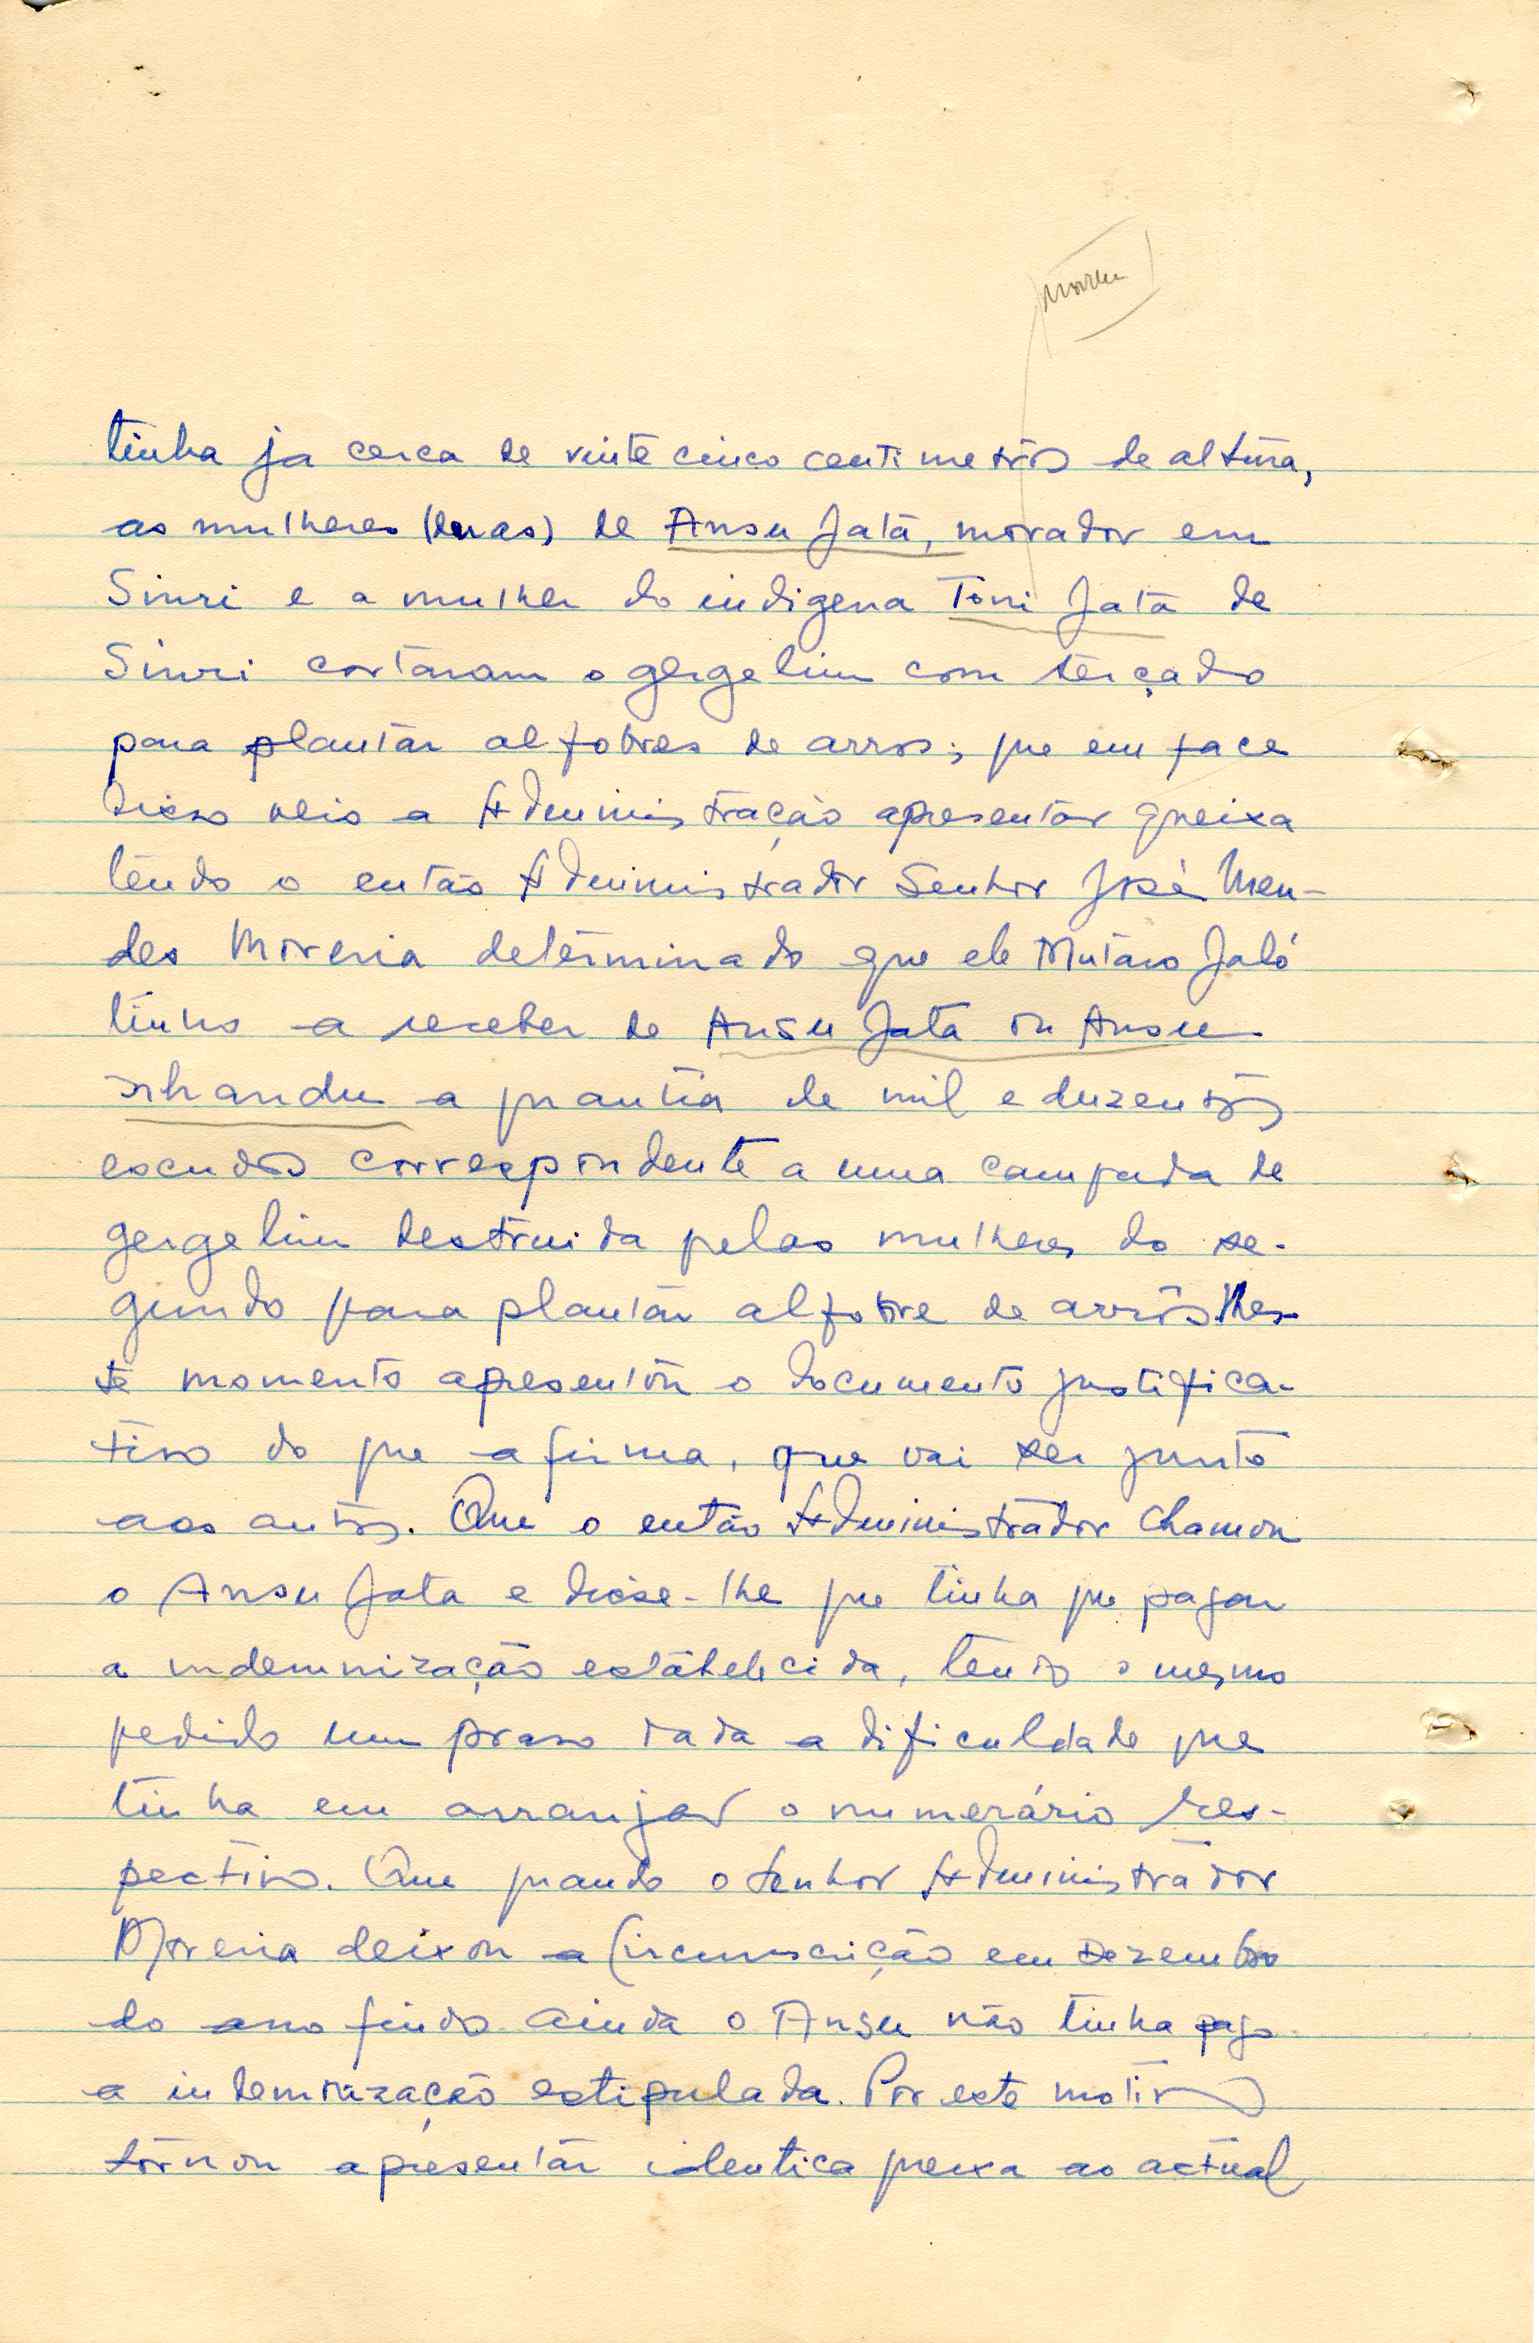 morreu
tinha ja cerca de vinte cinco centimetros de altura,
as mulheres (duas) de Ansu Jatá, morador em
Sinri e a mulher do indigena Toni Jatá de
Sinri cortaram o gergelim com terçado
para plantar alfobres de arros; que em face
disso veio a Administração apresentar queixa
tendo o então Administrador Senhor José Men-
des Moreira determinado que ele Mutaro Jaló
tinha a receber de Ansu Jatá ou Ansu
a quantia de mil e duzentos
escudos correspondente a uma campada de
gergelim destruida pelas mulheres do se-
gundo para plantar alfobre de arrôs. Nes-
te momento apresentou o documento justifica-
tivo do que afirma, que vai ser junto
aos autos. Que o então Administrador chamou
o Ansu Jata e disse-lhe que tinha que pagar
a indemnização estabelecida, tendo o mesmo
pedido um praso dada a dificuldade que
tinha em arranjar o numerário res-
pectivo. Que quando o Senhor Administrador
Moreira deixou a Circunscrição em Dezembro
do ano findo ainda o Ansu não tinha pago
a indemnização estipulada. Por este motivo
tornou apresentar identica queixa ao actual